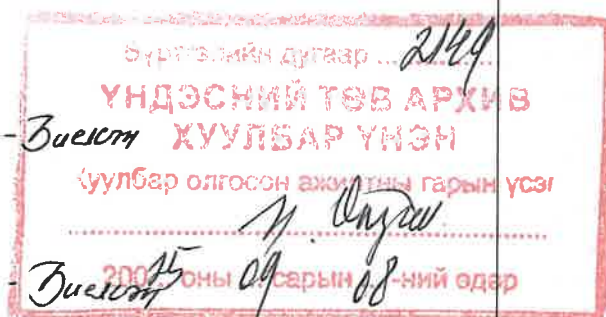 Бүртгэлийн дугаар ... 2149
ҮНДЭСНИЙ ТӨВ АРХИВ
- Биелсэн ХУУЛБАР ҮНЭН
Хуулбар олгосон ажилтны гарын үсэг
- Биелсэн 2005 оны 09 сарын 08-ний өдөр